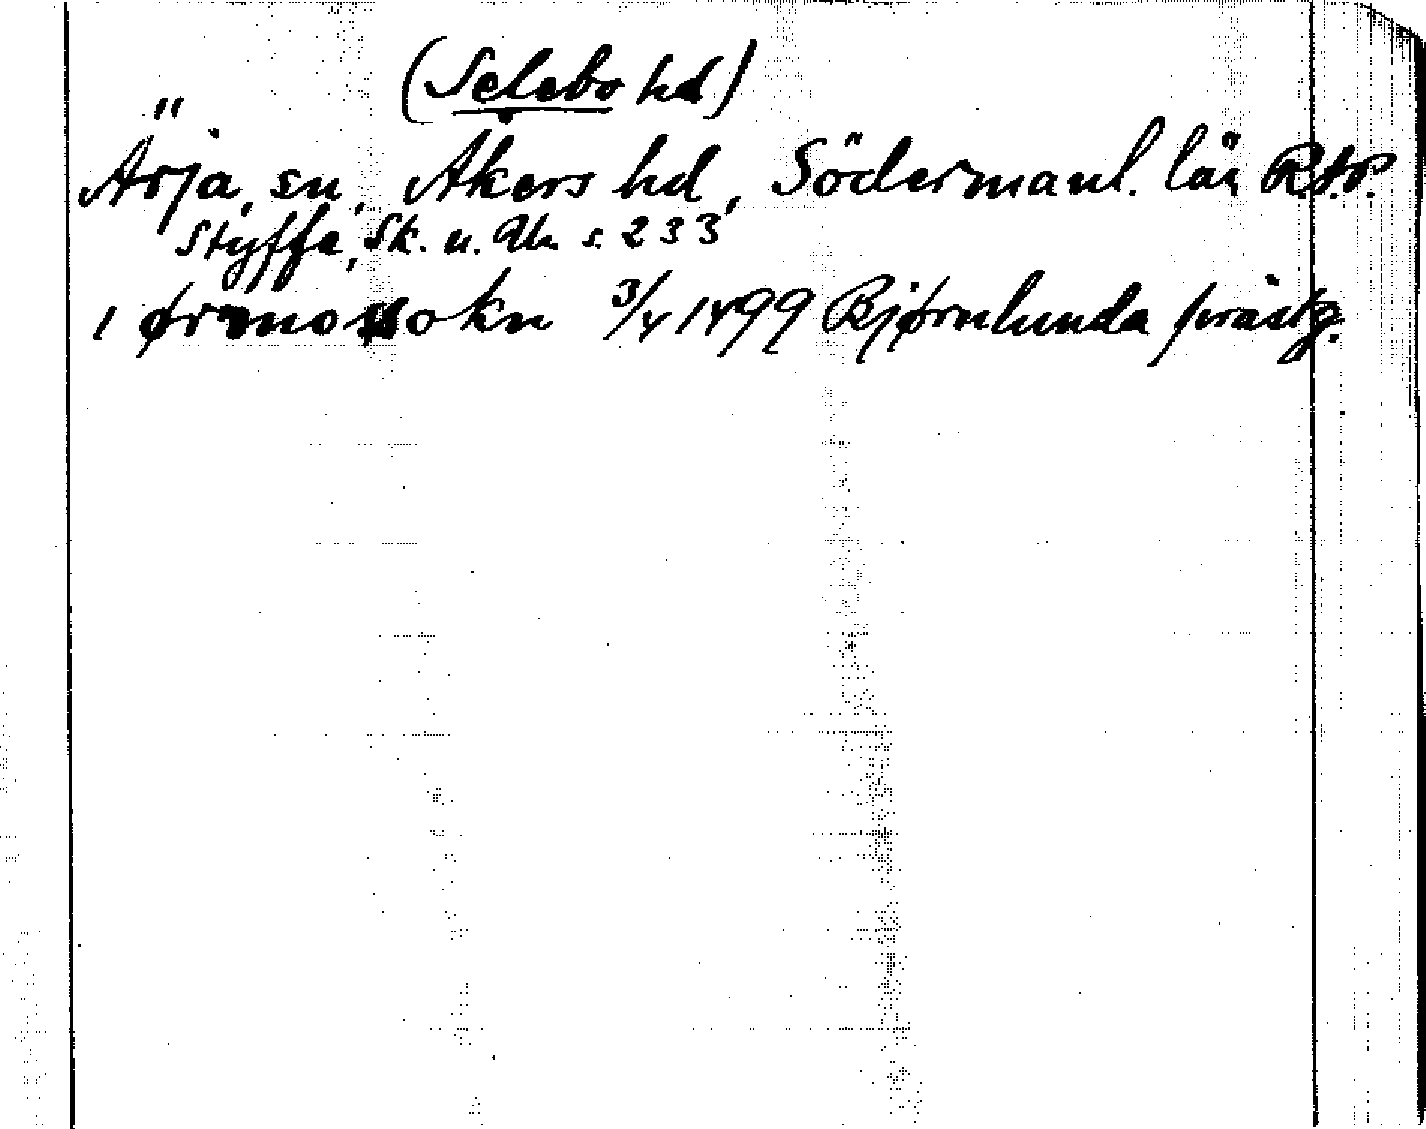 (Selebo hd)
Ärja, sn, Åkers hd, Södermanl. län R.t.P.
Styffe, Sk. u. Un. s. 233
i ørmosokn 3/4 1499 Bjørnlunda prästg.